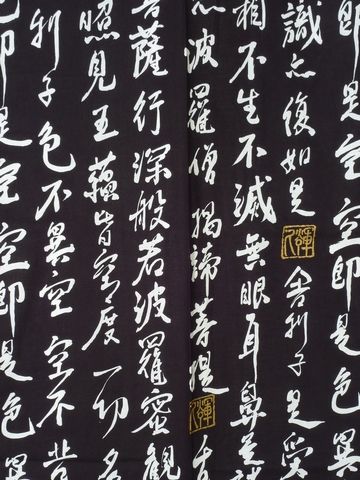 即是空空即是色異
識亦復如是 舍利子是受
相不生不滅無眼耳鼻
波羅僧揭諦菩提
菩薩行深般若波羅蜜観
照見五蘊皆空度一切
利子色不異空空不
即是空空即是色異